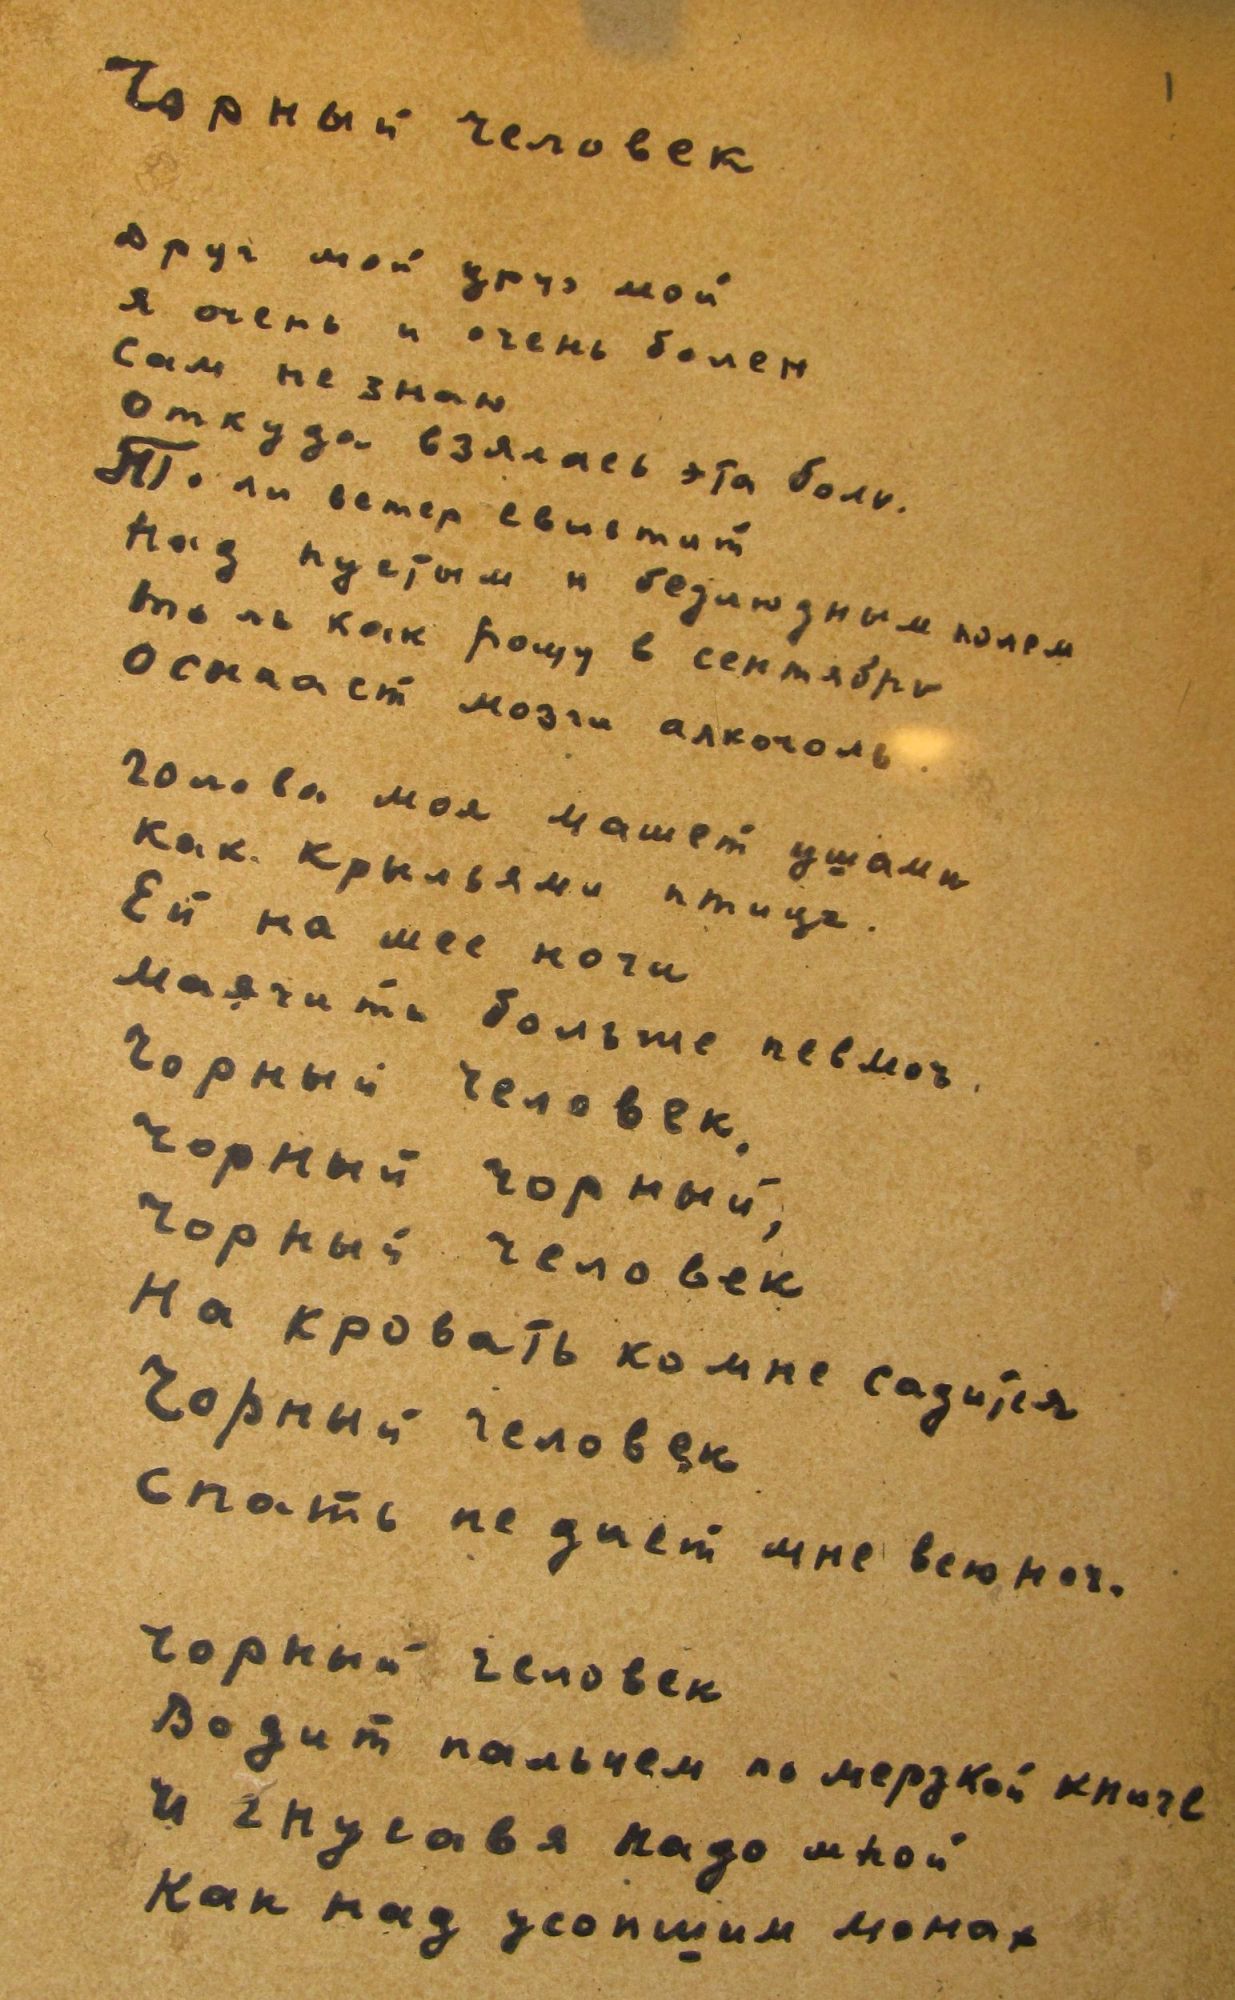 Чорный человек
Друг мой друг мой
Я очень и очень болен
Сам не знаю
Откуда взялась эта боль.
То ли ветер свистит
Над пустым и безлюдным полем
То ль как рощу в сентябрь
Осыпает мозги алкоголь.
Голова моя машет ушами
Как крыльями птица.
Ей на шее ночи
Маячить больше невмочь.
Чорный человек,
Чорный чорный,
Чорный человек
На кровать ко мне садится
Чорный человек
Спать не дает мне всю ноч.
Чорный человек
Водит пальцем по мерзкой книге
И гнусавя надо мной
Как над усопшим монах